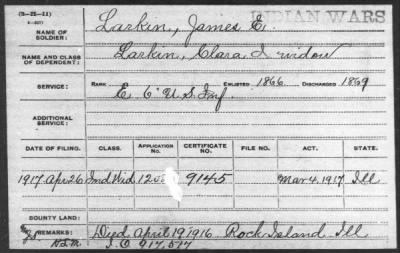 (3-25-11)
INDIAN WARS
NAME OF SOLDIER: Larkin, James E.
NAME AND CLASS OF DEPENDENT: Larkin, Clara I widow
SERVICE: RANK E 6" U.S. Inf. ENLISTED 1866 DISCHARGED 1869
ADDITIONAL SERVICE:
DATE OF FILING. CLASS. APPLICATION No. CERTIFICATE NO. FILE NO. ACT. STATE.
1917 Apr 26 Ind Wid 9145 Mar 4, 1917 Ill
BOUNTY LAND:
REMARKS: Died April 19 1916 Rock Island Ill
917,517